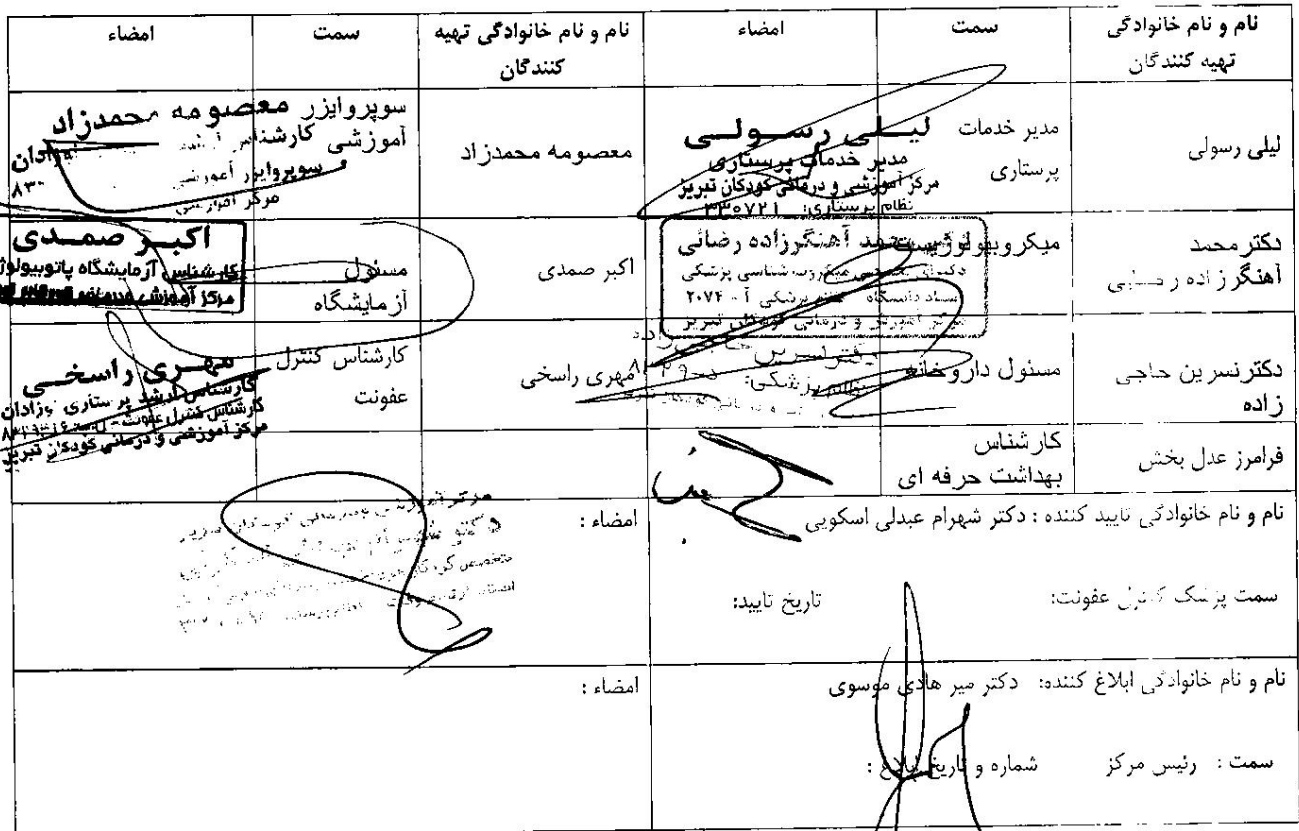 نام و نام خانوادگی تهیه کنندگان
سمت
امضاء
نام و نام خانوادگی تهیه کنندگان
سمت
امضاء
لیلی رسولی
مدیر خدمات پرستاری
لیلی رسولی
مدیر خدمات پرستاری
مرکز آموزشی و درمانی کودکان تبریز
نظام پرستاری:
معصومه محمدزاد
سوپروایزر آموزشی
معصومه محمدزاد
کارشناس
سوپروایزر آموزشی
مرکز
دکتر محمد آهنگرزاده رضایی
میکروبیولوژیست
محمد آهنگرزاده رضائی
میکروب شناسی پزشکی
۲۰۷۴
مرکز آموزشی و درمانی کودکان تبریز
اکبر صمدی
مسئول آزمایشگاه
اکبر صمدی
کارشناس آزمایشگاه
مرکز آموزشی
دکتر نسرین حاجی زاده
مسئول داروخانه
دکتر نسرین
مهری راسخی
کارشناس کنترل عفونت
مهری راسخی
کارشناس ارشد پرستاری نوزادان
کارشناس کنترل عفونت
مرکز آموزشی و درمانی کودکان تبریز
فرامرز عدل بخش
کارشناس بهداشت حرفه ای
نام و نام خانوادگی تایید کننده : دکتر شهرام عبدلی اسکویی
امضاء :
سمت پزشک کنترل عفونت:
تاریخ تایید:
نام و نام خانوادگی ابلاغ کننده: دکتر میر هادی موسوی
امضاء :
سمت : رئیس مرکز
شماره و تاریخ ابلاغ :